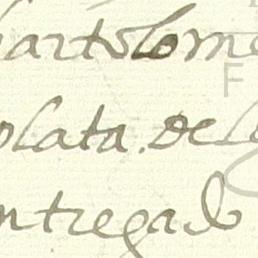 bartolome
plata. de l
ntregado